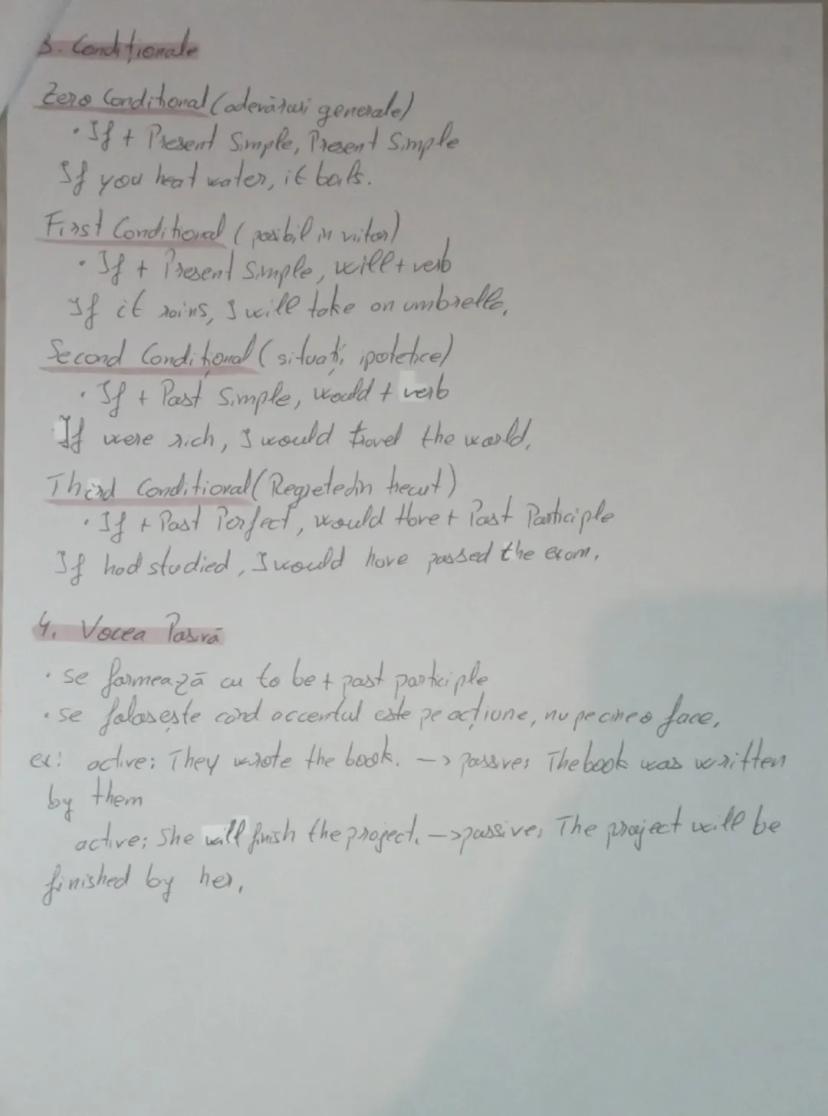 3. Condiționale
Zero Conditional (adevăruri generale)
• If + Present Simple, Present Simple
If you heat water, it boils.
First Conditional (posibil in viitor)
• If + Present Simple, will + verb
If it rains, I will take an umbrella.
Second Condițional (situații ipotetice)
• If + Past Simple, would + verb
If were rich, I would travel the world.
Third Conditional (Regrete din trecut)
• If + Past Perfect, would Have + Past Participle
If had studied, I would have passed the exam.
4. Vocea Pasivă
• se formează cu to be + past participle
• se folosește cand accentul este pe acțiune, nu pe cine o face.
ex: active: They wrote the book. -> passive: The book was written
by them
active: She will finish the project. -> passive: The project will be
finished by her.